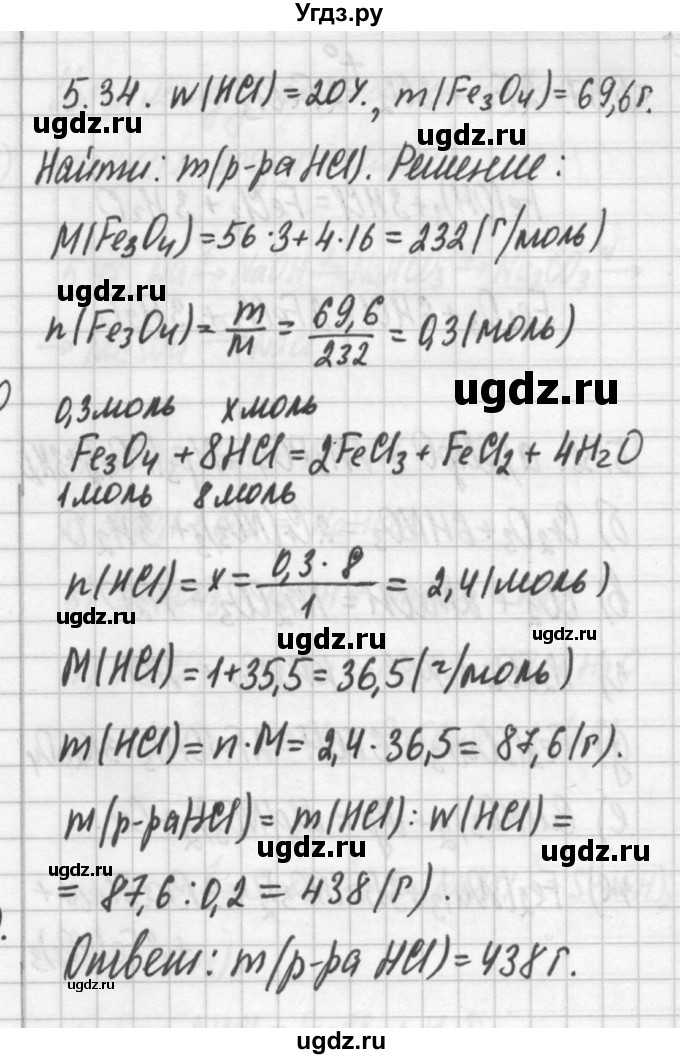 Угдз.ру
5.34. w(HCl)=20%, m(Fe₃O₄)=69,6г.
ugdz.ru
ugdz.ru
Найти: m(р-ра HCl). Решение:
M(Fe₃O₄)=56·3+4·16=232(г/моль)
ugdz.ru
n(Fe₃O₄)=m/M=69,6/232=0,3(моль)
ugdz.ru
0,3моль x моль
Fe₃O₄+8HCl=2FeCl₃+FeCl₂+4H₂O
1моль 8моль
n(HCl)=x=0,3·8/1=2,4(моль)
ugdz.ru
ugdz.ru
ugdz.ru
M(HCl)=1+35,5=36,5(г/моль)
m(HCl)=n·M=2,4·36,5=87,6(г).
m(р-ра HCl)=m(HCl):w(HCl)=
ugdz.ru
ugdz.ru
ugdz.ru
=87,6:0,2=438(г).
Ответ: m(р-ра HCl)=438г.
ugdz.ru
ugdz.ru